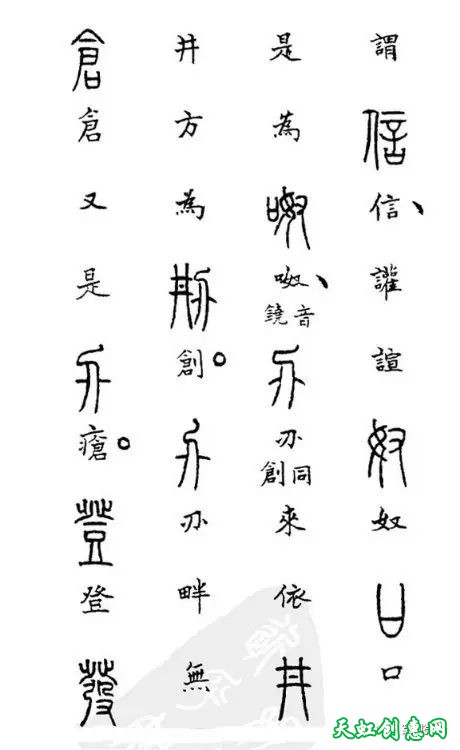 謂信信、讙諠奴奴口口
是為呶呶、音鐃刅刅同創來依井
井方為剏創。刅刅畔無
倉倉又是刅瘡。登登發
天虹创意网